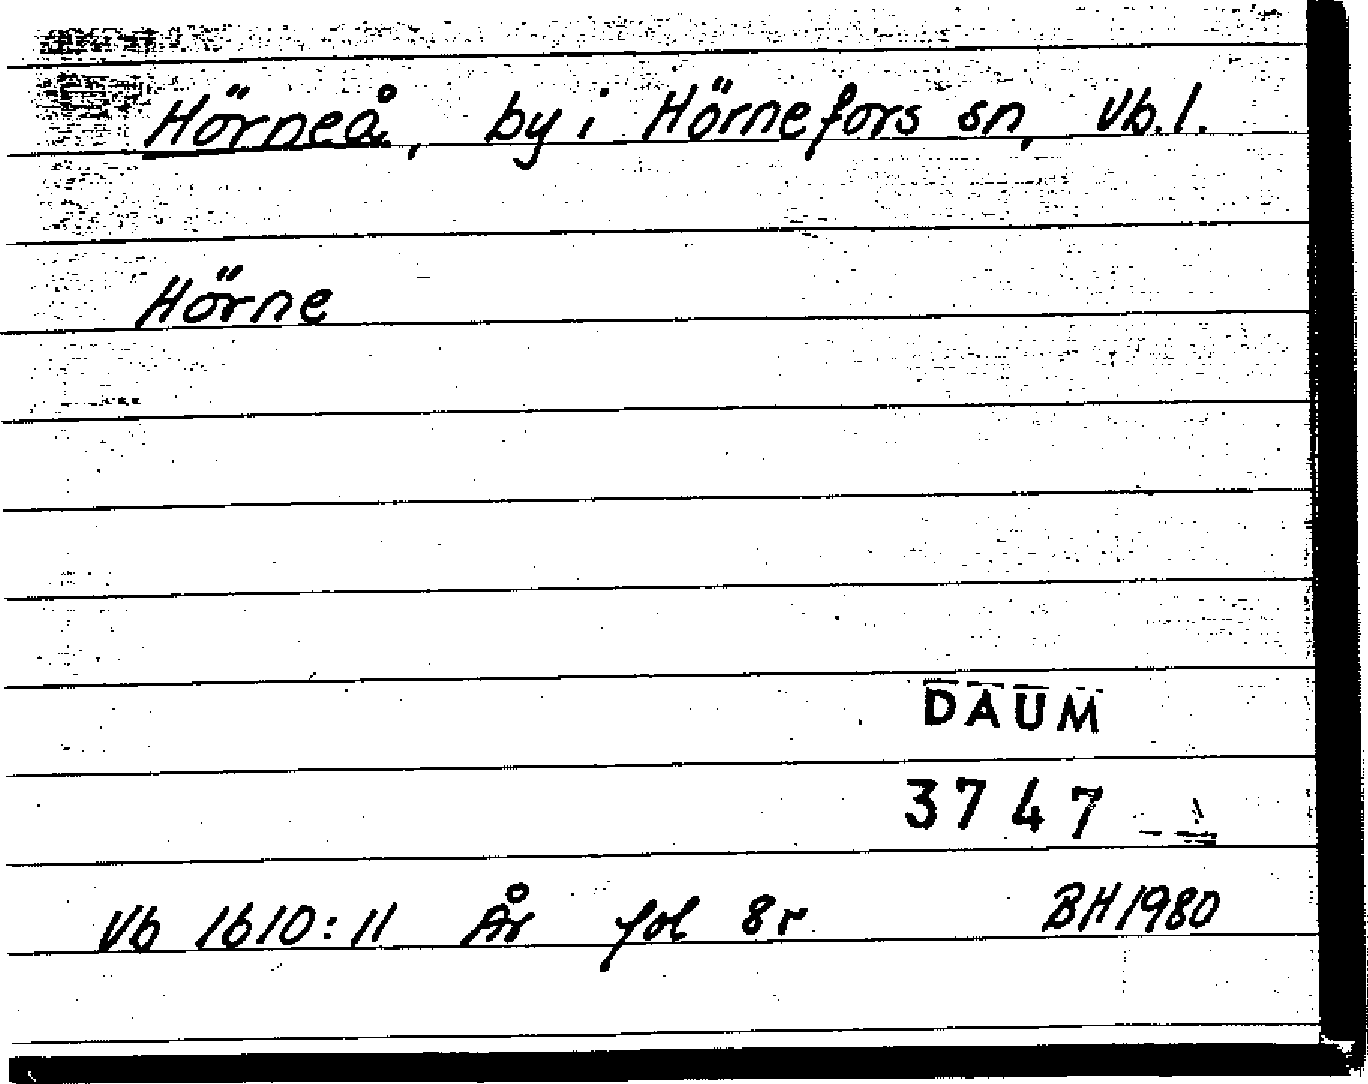 Hörneå, by i Hörnefors sn, Vb.l.
Hörne
DAUM
3747
Vb 1610:11 År fol 8r BH 1980